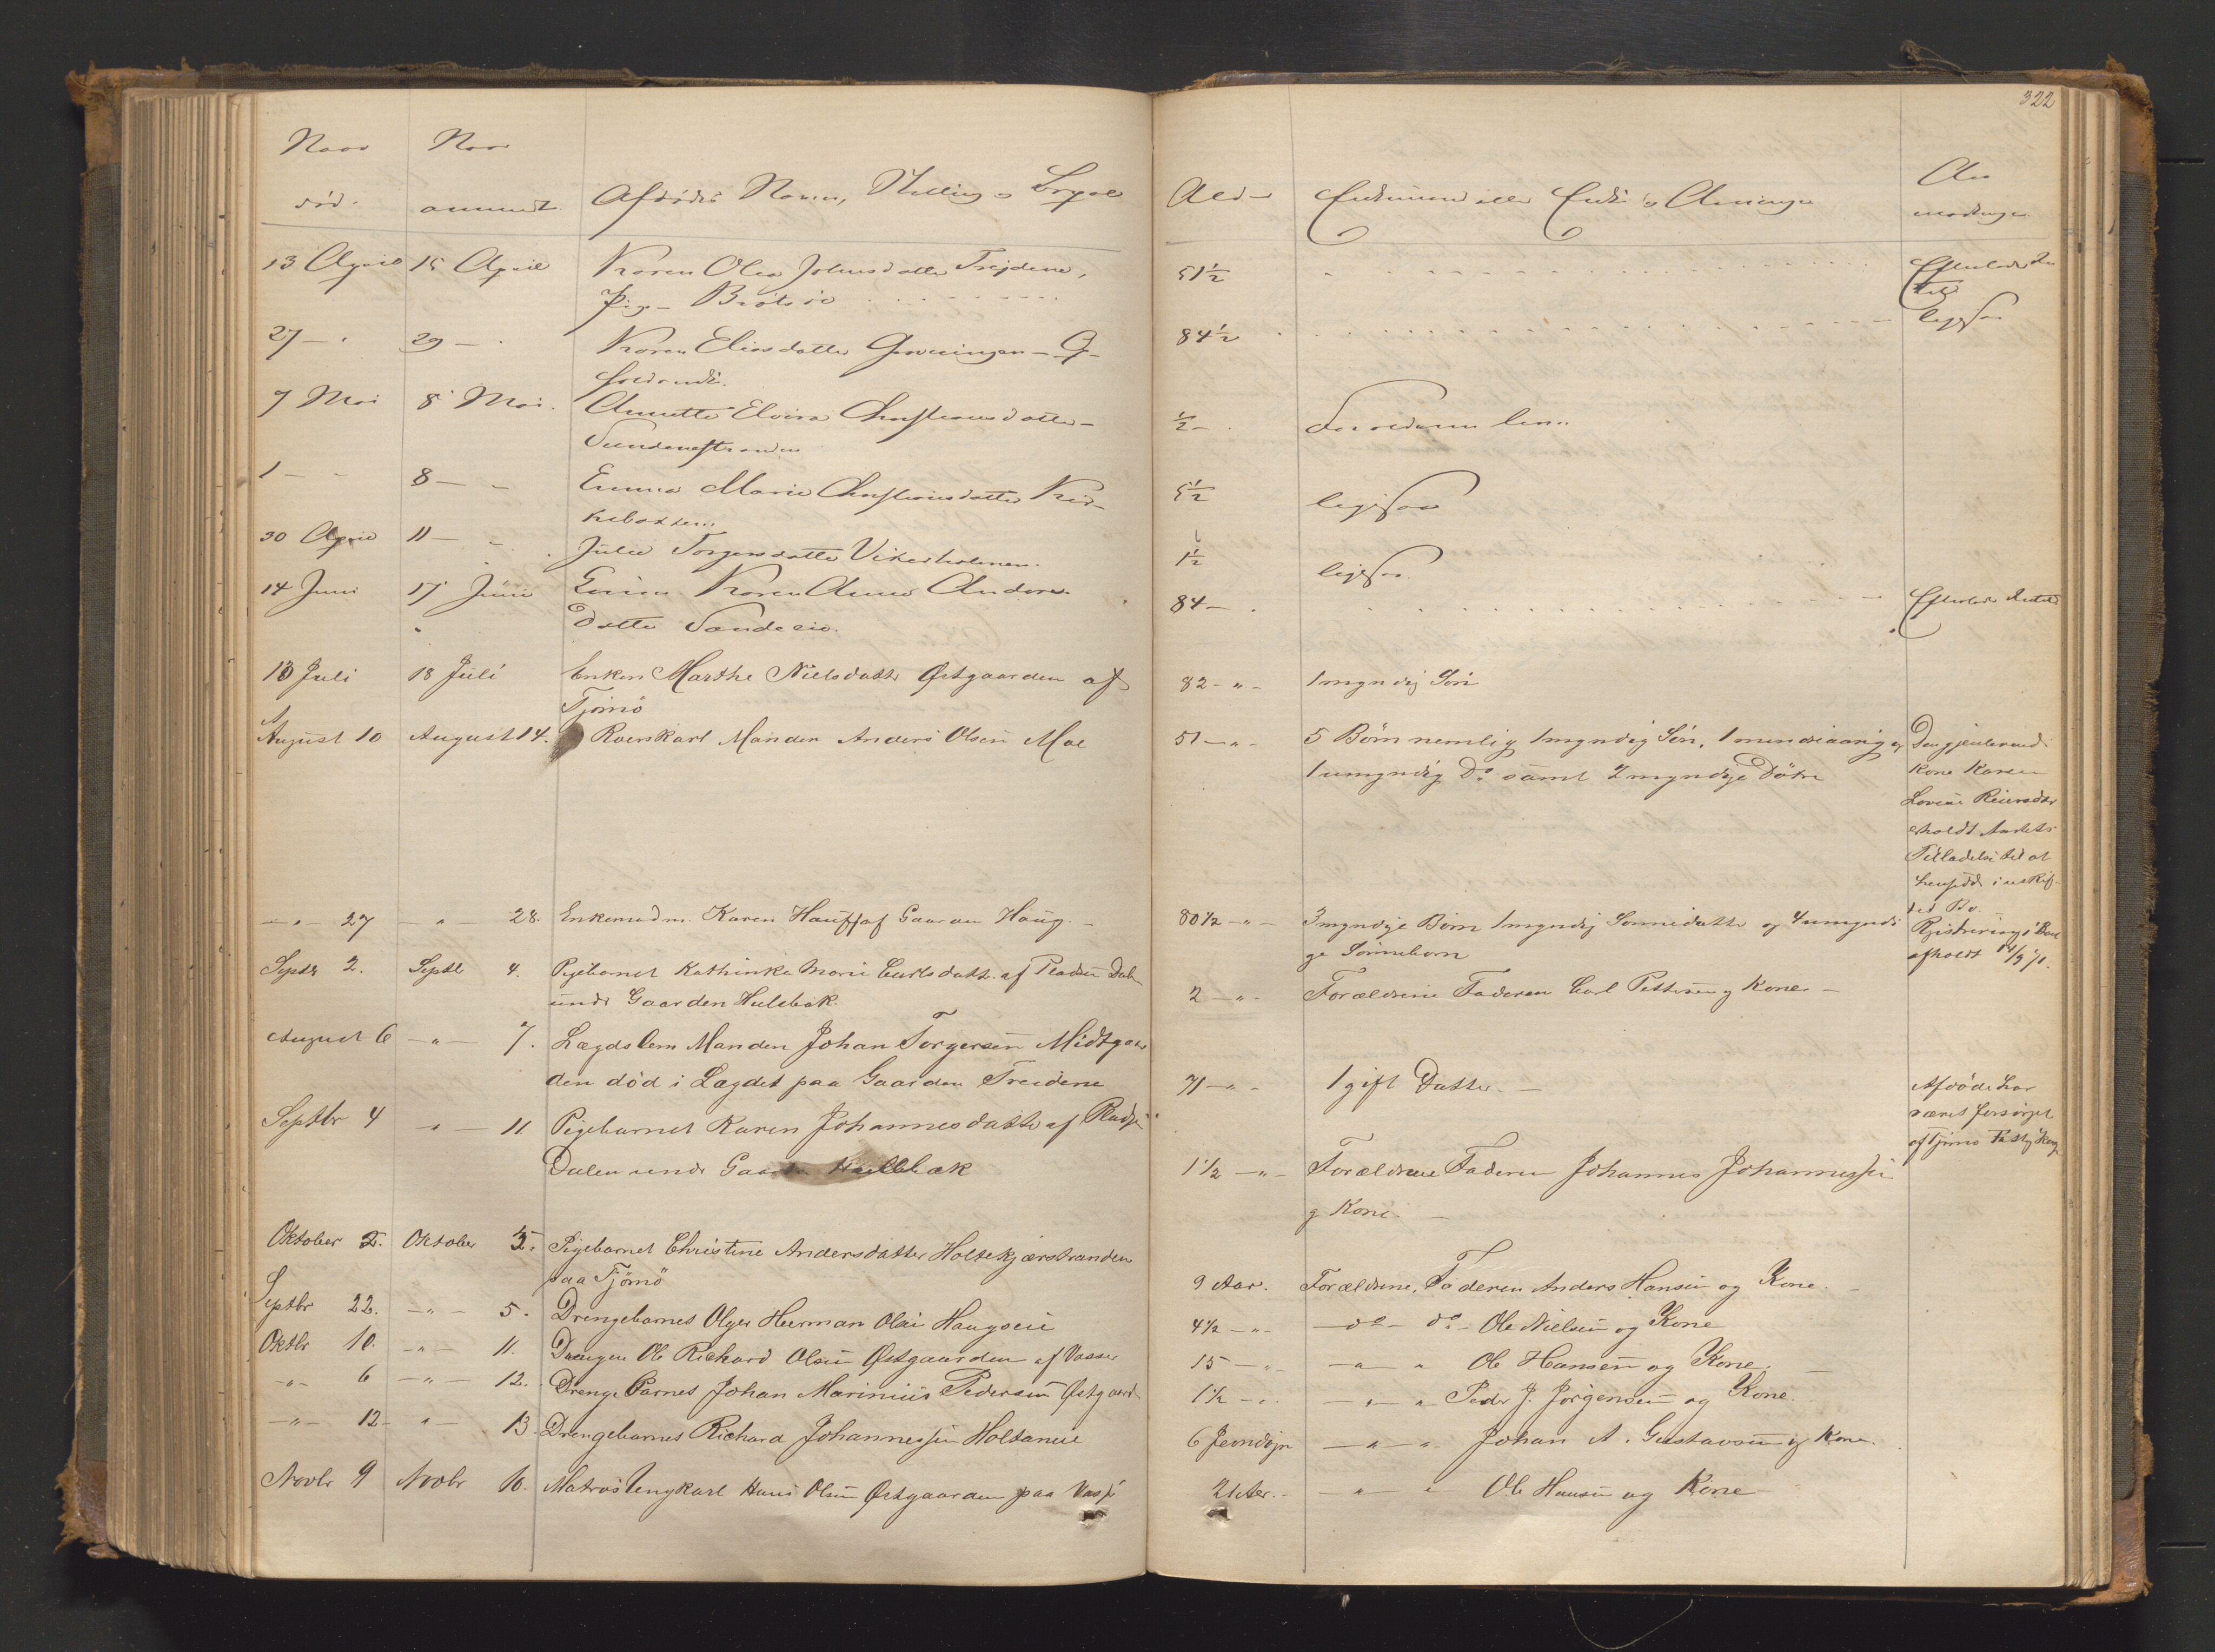 322
Naar død.
Naar anmeldt
Afdødes Navn, Stilling og Bopæl
Alder
Enkemand eller Enke og Arvinger
An
mærkninger
13 April 15 April Karen Olea Johnsdatter Trejdene,
Pige - Brøtsø
51½
Efterlader In
tet
27 - 29 - Karen Eliasdatter Grevningen - G
84½
ligesaa
7 Mai 8 Mai. Annette Elvine Christiansdatter -
Sundenestranden
½ - Forældrene leve
1 - - 8 - - Emma Marie Christiansdatter Kir-
kebakken
5½ ligesaa
30 April 11 - - Julie Torgersdatter Vikerholmen.
1½ ligesaa
14 Juni 17 Juni Enken Karen Anne Anders-
datter Sandeeie.
84 -
Efterlader Intet
13 Juli 18 Juli Enken Marthe Nielsdatter Østgaarden af
Tjømø
82 - " - 1 myndig Søn
August 10 August 14. Kaarskarl Manden Anders Olsen Moe
51 - " - 5 Børn nemlig 1 myndig Søn, 1 mindreaarig og
1 umyndig Do samt 2 myndige Døtre
Den gjenlevende
Kone Karen
Lovise Reiersdtr
erholdt Amtets
Tilladelse til at
hensidde i uskif-
tet Bo.
- " - 27 - " - 28. Enkemadm. Karen Hauff af Gaarden Haug. -
80½ - " - 3 myndige Børn 1 myndig Sønnedatter og 4 umyndi
ge Sønnebørn
Registrering i Boet
afholdt 14/9 71.
Septbr 2. Septbr 4. Pigebarnet Kathinka Marie Carlsdatter af Pladsen Dalen
under Gaarden Hulebak.
2 - " - Forældrene Faderen Carl Pettersen og Kone. -
August 6 - " - 7. Lægdslem Manden Johan Torgersen Midtgaar
den død i Lægdet paa Gaarden Treidene
71 - " - 1 gift Datter. -
Afdøde har
været forsørget
af Tjømø Fattigkasse
Septbr 4 - " - 11. Pigebarnet Karen Johannesdatter af Pladsen
Dalen under Gaarden Hullebak
1½ - " - Forældrene Faderen Johannes Johannessen
og Kone -
Oktober 2. Oktober 5. Pigebarnet Christine Andersdatter Holtekjærstranden
paa Tjømø
9 Aar. Forældrene, Faderen Anders Hansen og Kone. -
Septbr 22. - " - 5. Drengebarnet Olger Herman Olsen Haugseie
4½ - " - - do - do - Ole Nielsen og Kone
Oktbr 10. - " - 11. Drengen Ole Richard Olsen Østgaarden af Vasser
15 - " - - " - " Ole Hansen og Kone. -
- " - 6 - " - 12. Drengebarnet Johan Marinius Pedersen Østgaard
1½ - " - " - " Peder J. Jørgensen og Kone.
- " - 12 - " - 13. Drengebarnet Richard Johannessen Holtaneie
6 Jevndøgn - " - " Johan A. Gustavsen og Kone.
Novbr 9 Novbr 10. Matros Ungkarl Hans Olsen Østgaarden paa Vasser
21 Aar. - - " - " Ole Hansen og Kone